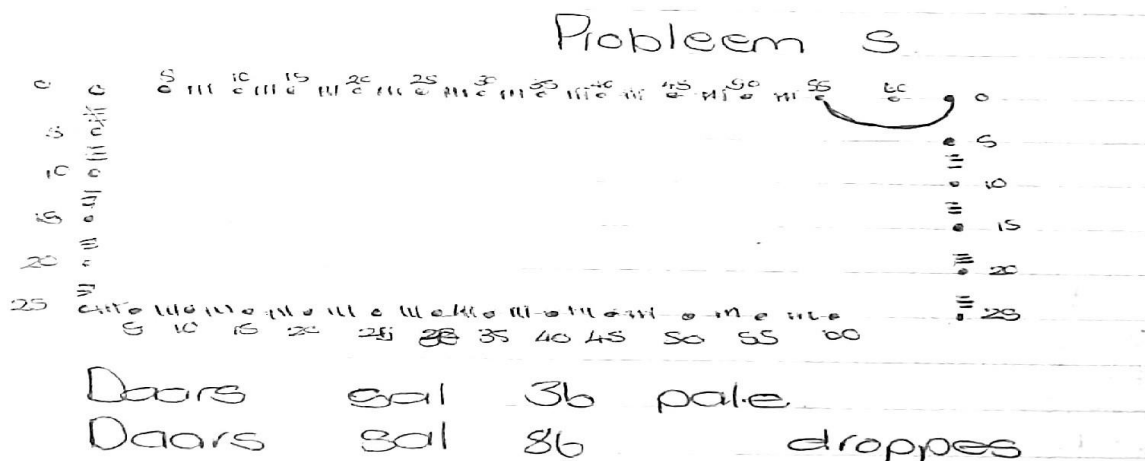 Probleem 5
0 5 10 15 20 25 30 35 40 45 50 55 60 0
5 5
10 10
15 15
20 20
25 25
5 10 15 20 25 35 40 45 50 55 60
Daars sal 36 pale
Daars sal 86 droppes